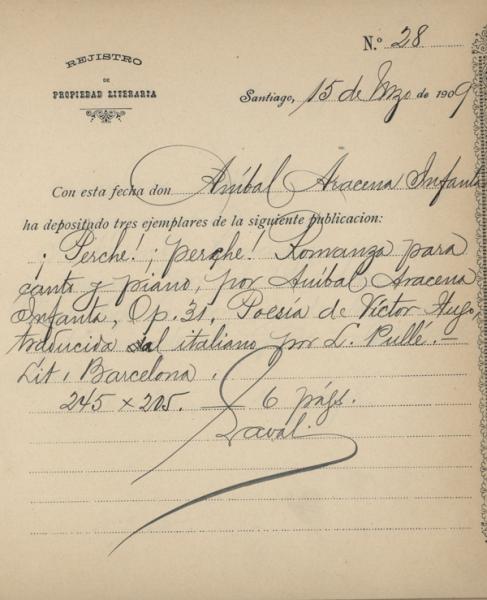 N.º 28
REJISTRO
DE
PROPIEDAD LITERARIA
Santiago, 15 de Mzo de 1909
Con esta fecha don Aníbal Aracena Infanta
ha depositado tres ejemplares de la siguiente publicacion:
¡Perché!; perché! Romanza para
canto y piano, por Aníbal Aracena
Infanta, Op. 31, Poesía de Víctor Hugo,
traducida al italiano por L. Pullé.—
Lit. Barcelona.
245 × 205. — 6 págs.
Laval.